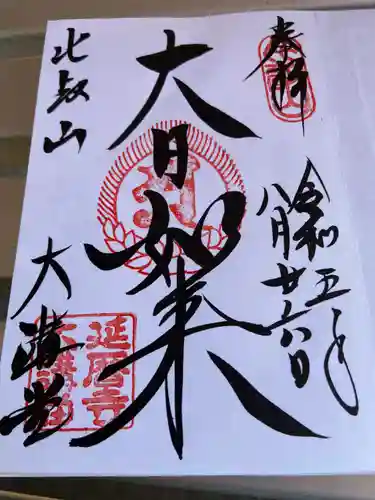 奉拝
令和五年
八月廿六日
大日如来
比叡山
大講堂
延暦寺
大講堂